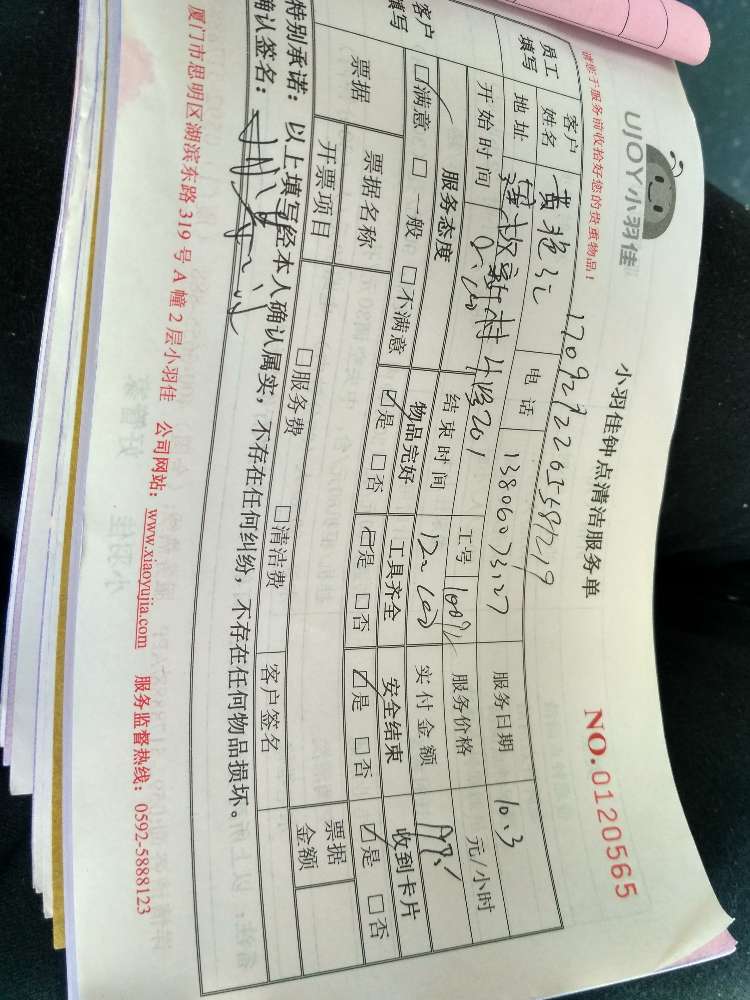 UJOY小羽佳
小羽佳钟点清洁服务单
NO.0120565
请您于服务前收拾好您的贵重物品！
170929226159219
员工填写
客户姓名 电话 13806073127 服务日期 10.3
地址 201 工号 服务价格 元/小时
开始时间 结束时间 实付金额
客户填写
服务态度 物品完好 工具齐全 安全结束 收到卡片
□满意 □一般 □不满意 □是 □否 □是 □否 □是 □否 □是 □否
票据 票据名称 票据金额
开票项目 □服务费 □清洁费 客户签名
特别承诺：以上填写经本人确认属实，不存在任何纠纷，不存在任何物品损坏。
确认签名：
厦门市思明区湖滨东路319号A幢2层小羽佳 公司网站：www.xiaoyujia.com 服务监督热线：0592-5888123